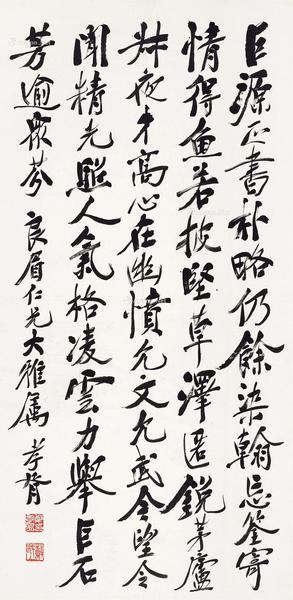 巨源正書朴略仍餘染翰忘筌寄
情得魚若披堅草澤匿銳茅廬
叔夜才高心在幽憤允文允武令望令
聞精光照人氣格凌雲力舉巨石
芳逾衆芬 良眉仁兄大雅属 孝胥